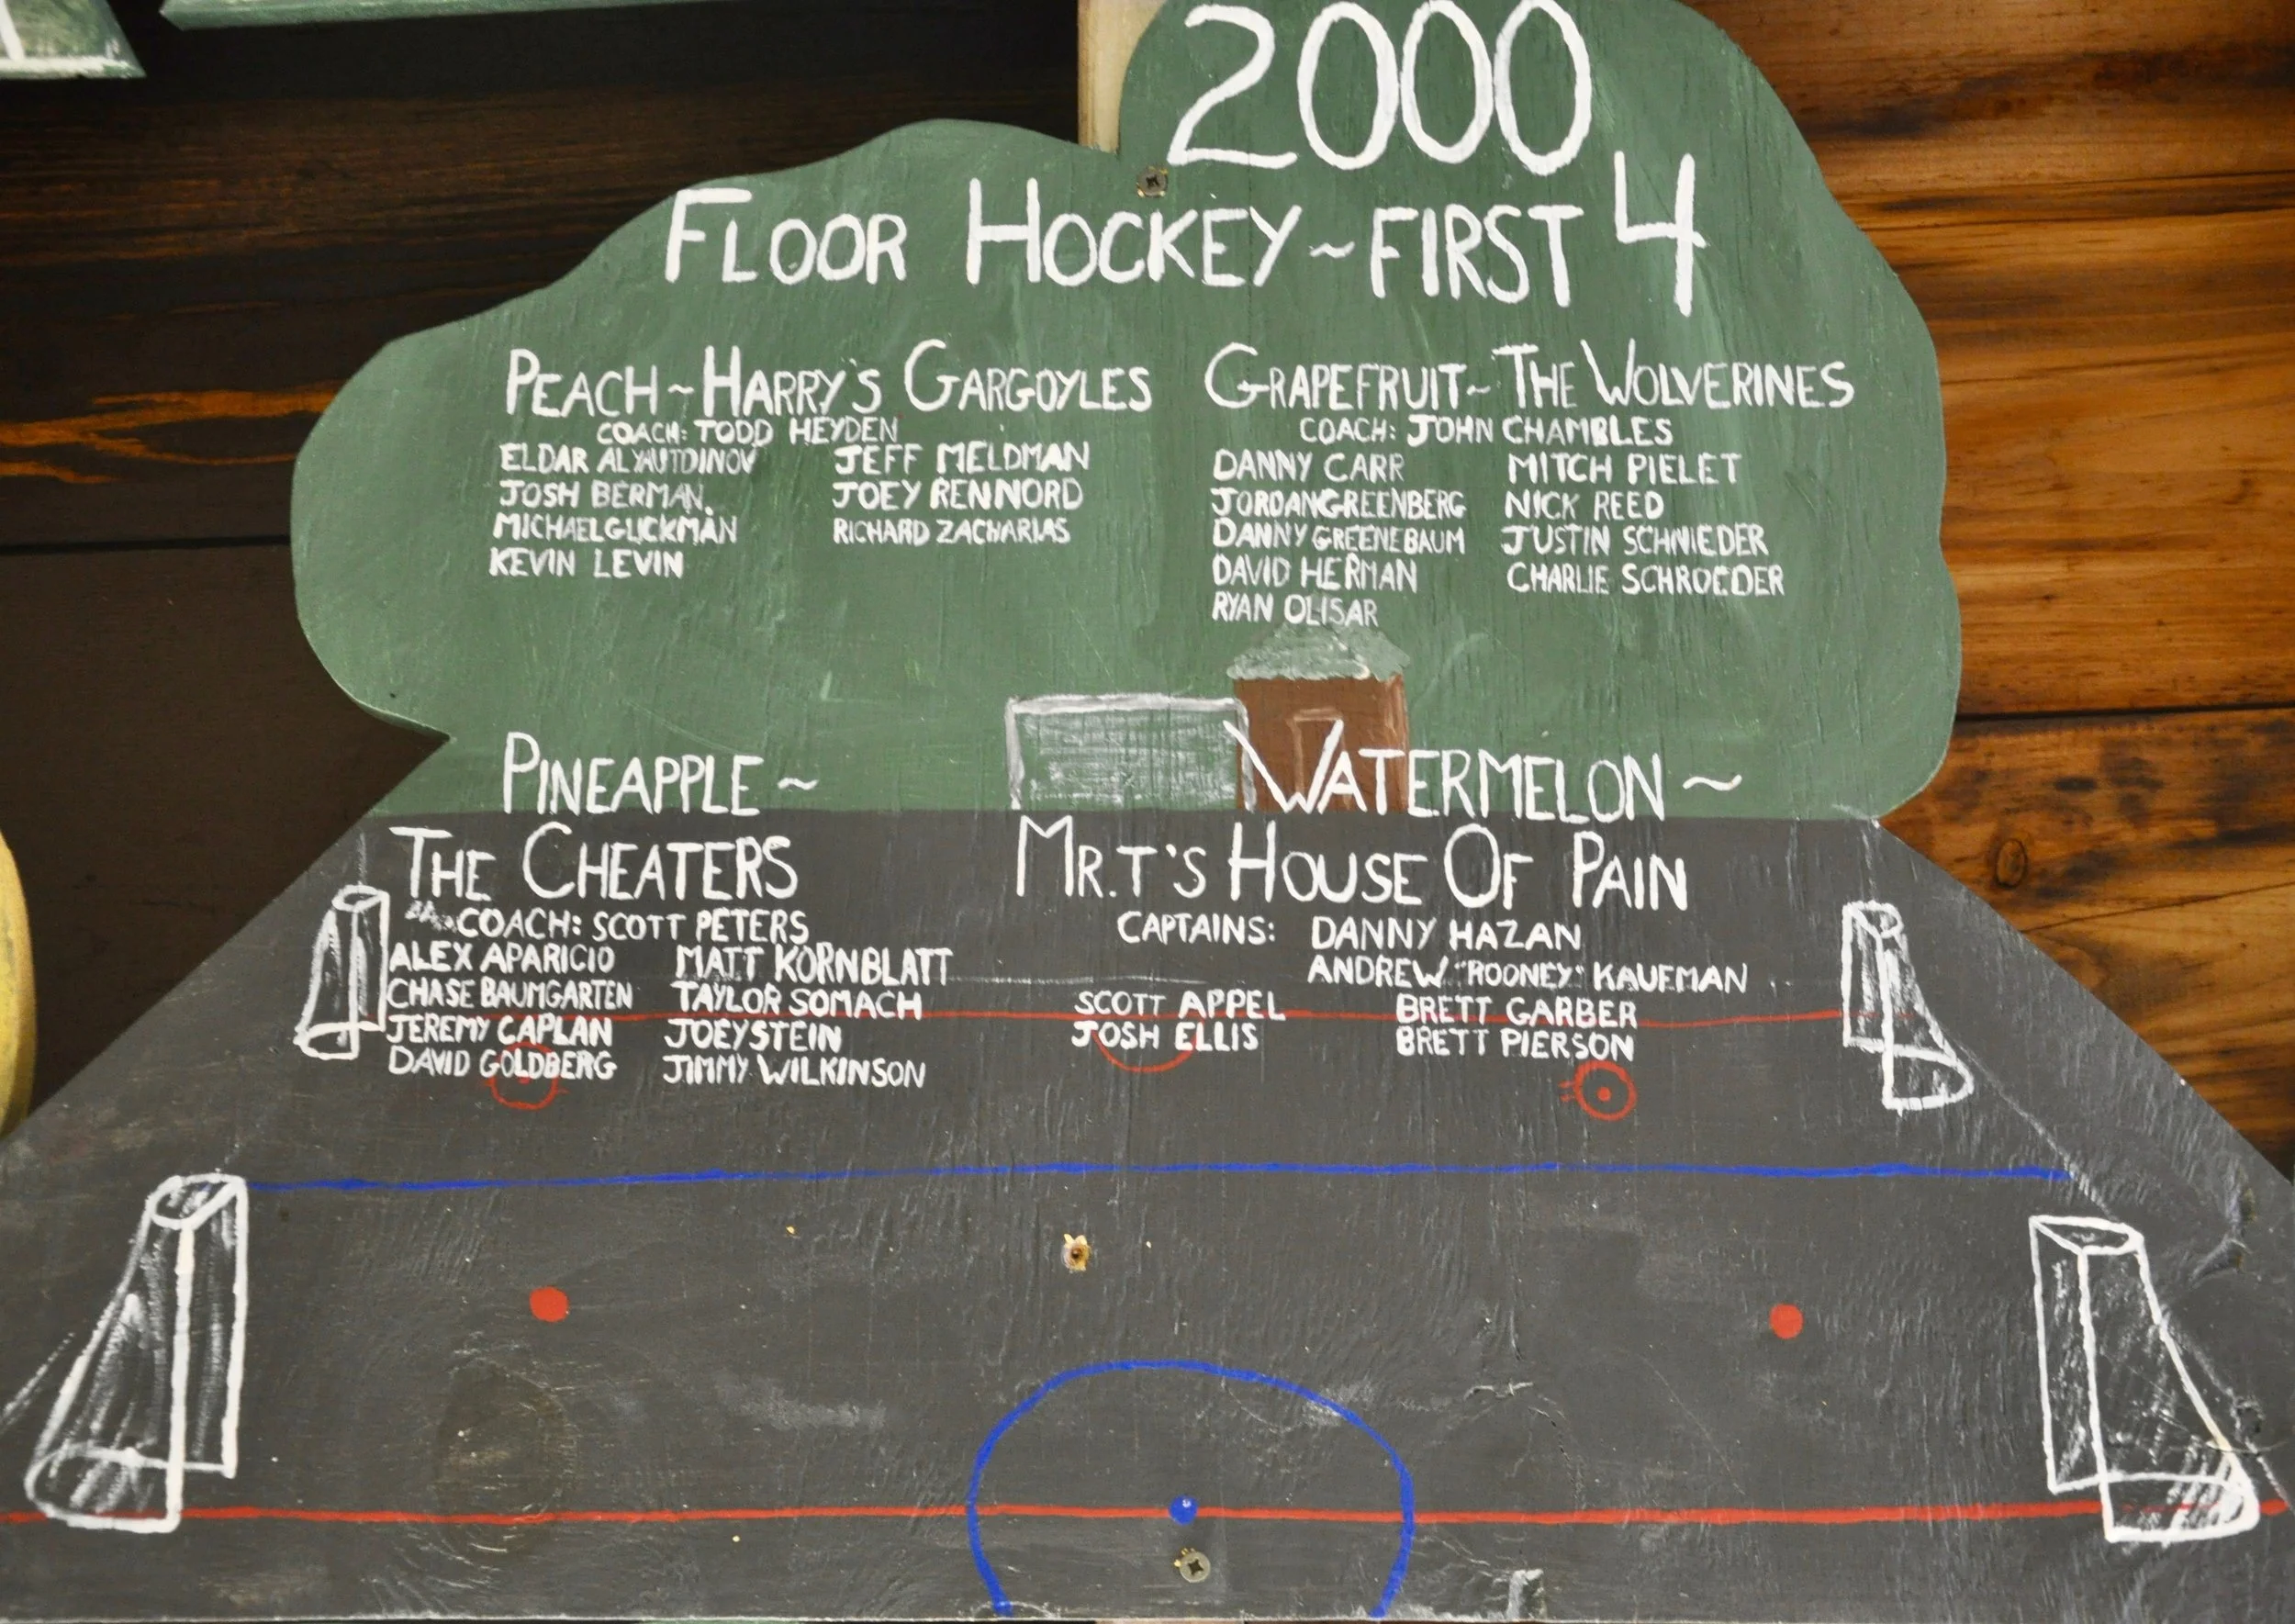 2000
FLOOR HOCKEY ~ FIRST 4
PEACH ~ HARRY'S GARGOYLES
COACH: TODD HEYDEN
ELDAR ALYAUTDINOV JEFF MELDMAN
JOSH BERMAN JOEY RENNORD
MICHAEL GLICKMAN RICHARD ZACHARIAS
KEVIN LEVIN
GRAPEFRUIT ~ THE WOLVERINES
COACH: JOHN CHAMBLES
DANNY CARR MITCH PIELET
JORDAN GREENBERG NICK REED
DANNY GREENEBAUM JUSTIN SCHNIEDER
DAVID HERMAN CHARLIE SCHROEDER
RYAN OLISAR
PINEAPPLE ~
THE CHEATERS
COACH: SCOTT PETERS
ALEX APARICIO MATT KORNBLATT
CHASE BAUMGARTEN TAYLOR SOMACH
JEREMY CAPLAN JOEY STEIN
DAVID GOLDBERG JIMMY WILKINSON
WATERMELON ~
MR.T'S HOUSE OF PAIN
CAPTAINS: DANNY HAZAN
ANDREW "ROONEY" KAUFMAN
SCOTT APPEL BRETT GARBER
JOSH ELLIS BRETT PIERSON